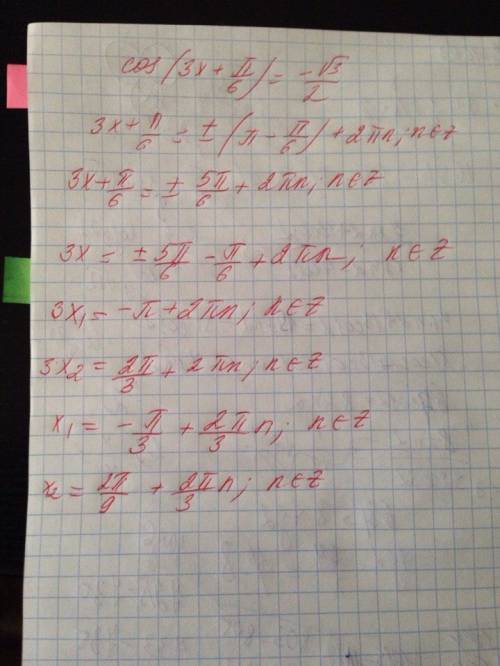 cos(3x + π/6) = -√3/2
3x + π/6 = ± (π - π/6) + 2πn; n∈Z
3x + π/6 = ± 5π/6 + 2πn; n∈Z
3x = ± 5π/6 - π/6 + 2πn; n∈Z
3x₁ = -π + 2πn; n∈Z
3x₂ = 2π/3 + 2πn; n∈Z
x₁ = -π/3 + 2π/3 n; n∈Z
x₂ = 2π/9 + 2π/3 n; n∈Z